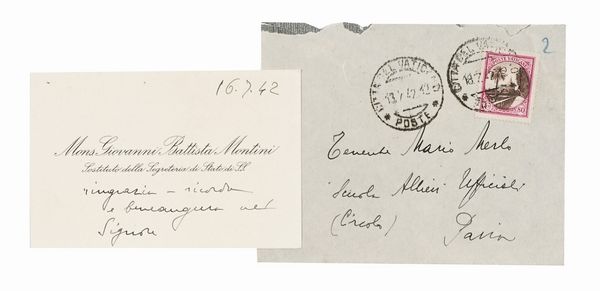 16.7.42
Mons. Giovanni Battista Montini
Sostituto della Segreteria di Stato di SS.
ringrazia - ricorda
e bene augura nel
Signore
2
CITTÀ DEL VATICANO
18.7.42.12
POSTE
CITTÀ DEL VATICANO
18.7.
POSTE VATICANE
80
Tenente Mario Merlo
Scuola Allievi Ufficiali
(Circolo) Pavia